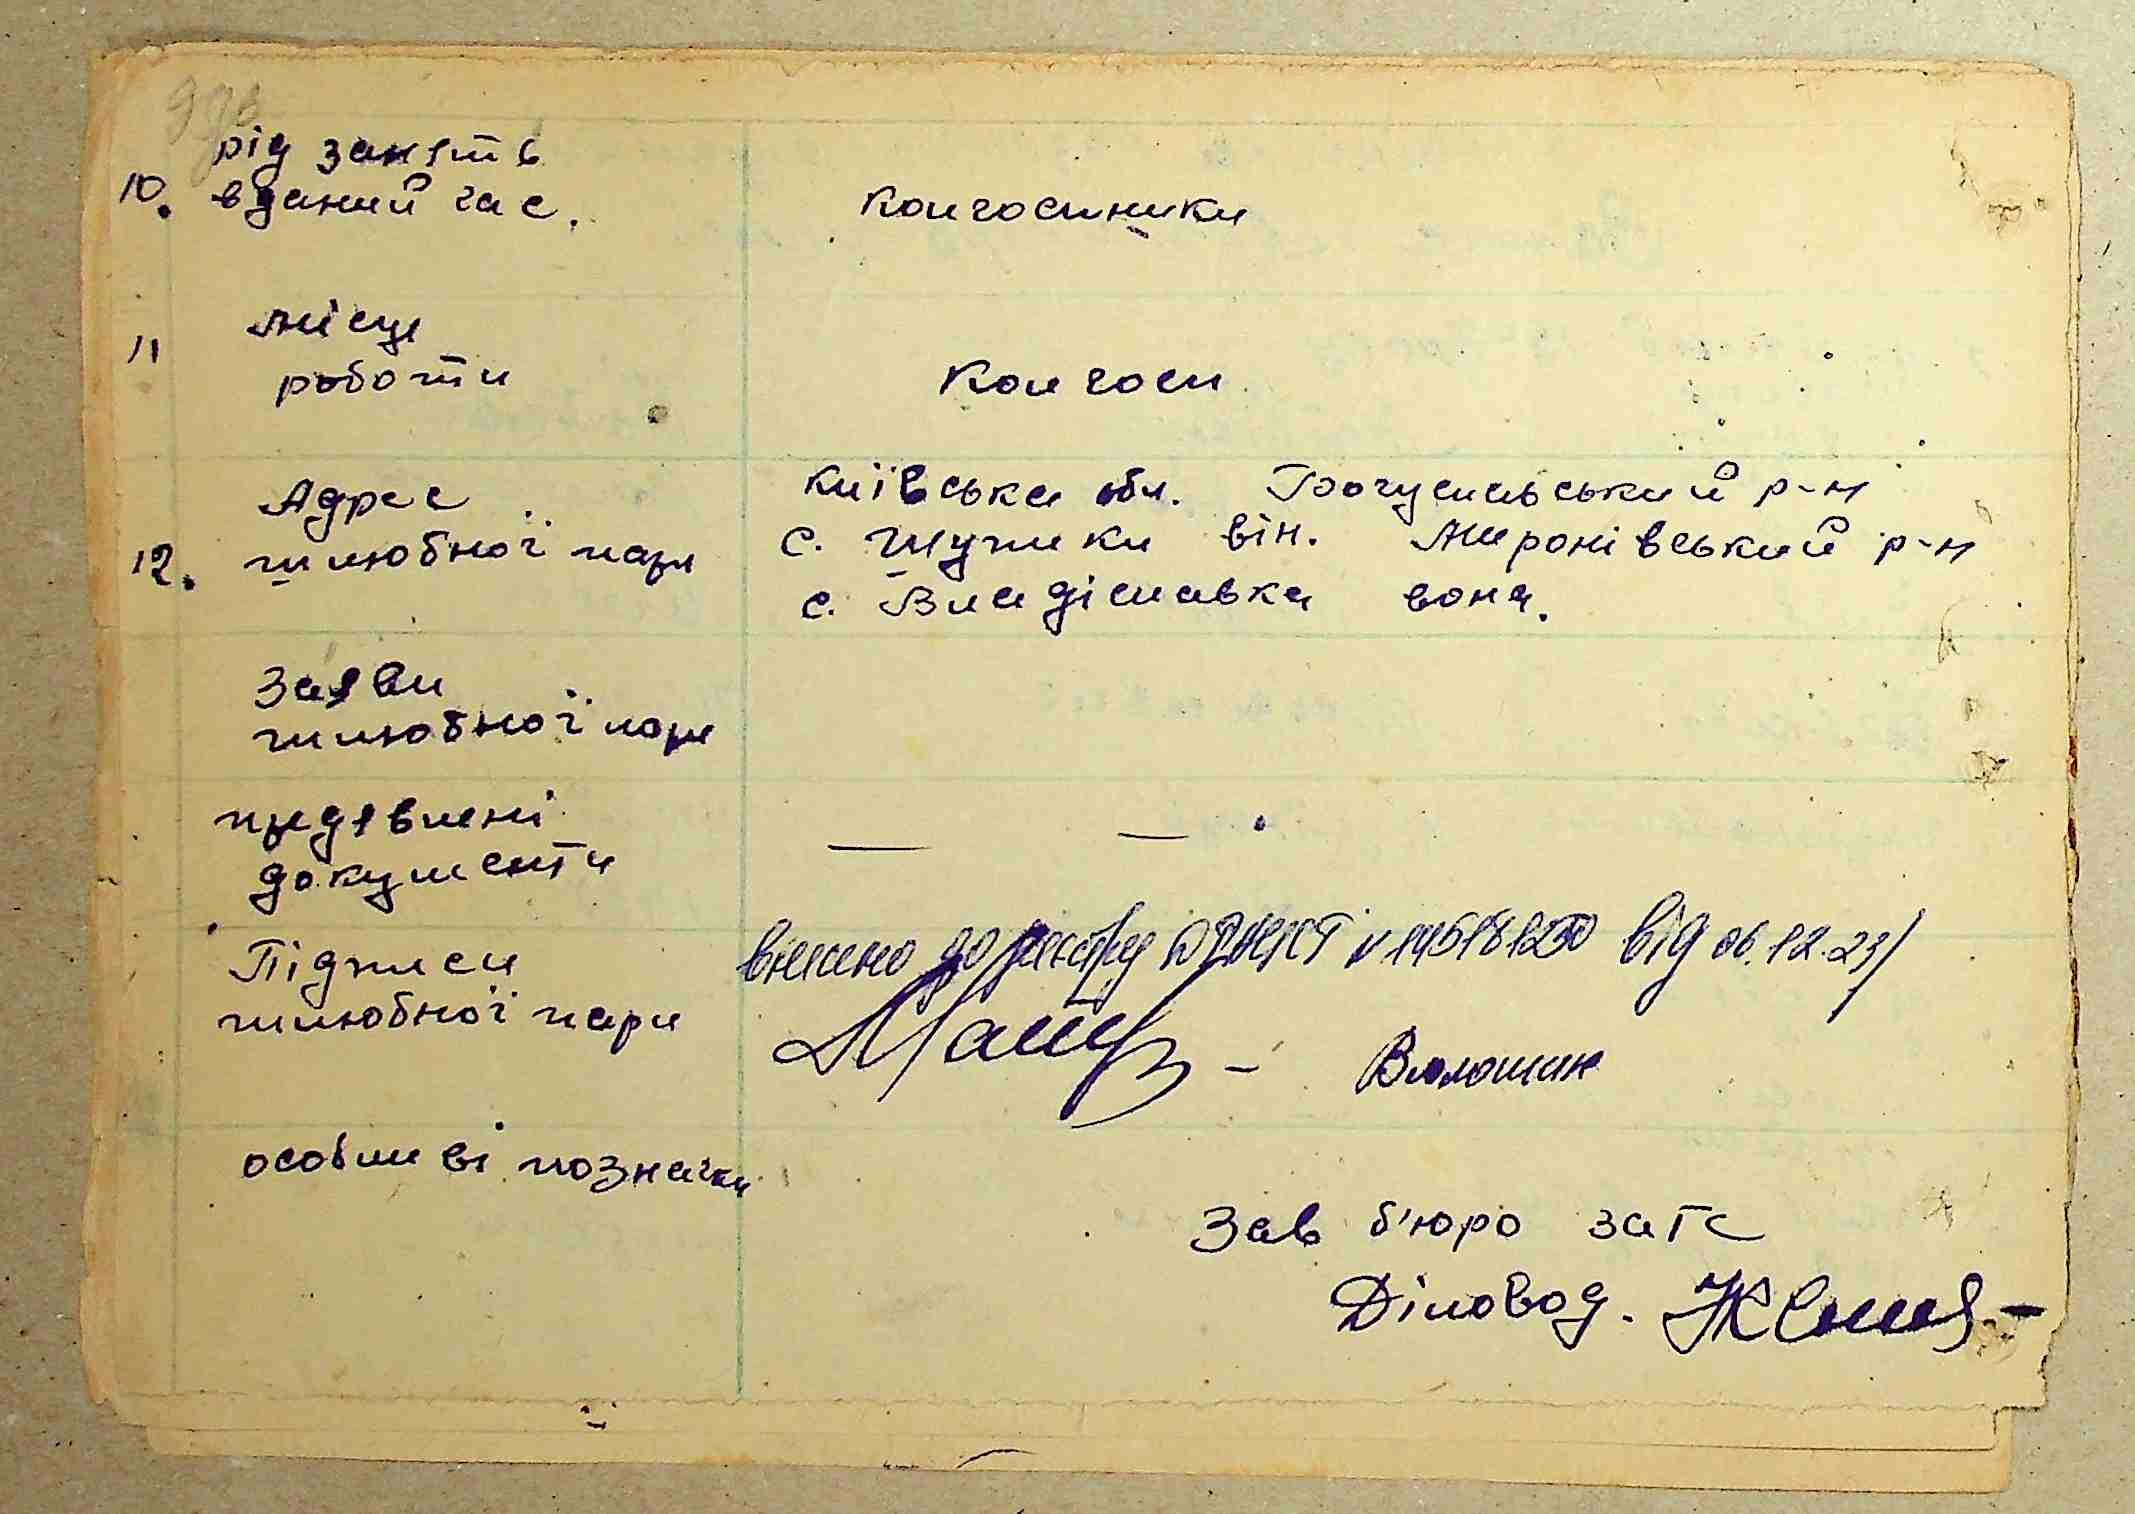 10. рід занять
в даний час.
колгоспники
11 місце
роботи
колгосп
12. Адрес
шлюбної пари
київська обл. Богуславський р-н
с. Шупики він. Миронівський р-н
с. Владіславка вона.
Заяви
шлюбної пари
предявлені
документи
— —
Підписи
шлюбної пари
внесено до реєстру від 06.12.23
— Волошин
особливі позначки
Зав б'юро загс
Діловод.